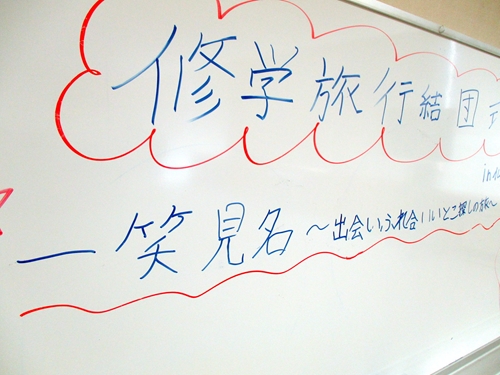 修学旅行結団
in
一笑見名～出会い、ふれ合い、いいとこ探しの旅～